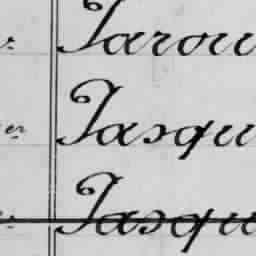 Tarou
Tasqu
Tasqu